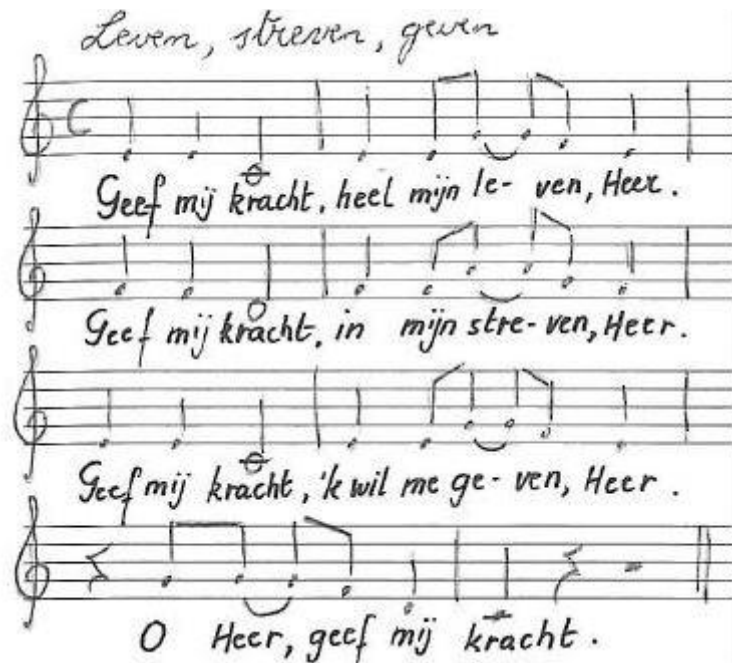 Leven, streven, geven
Geef mij kracht, heel mijn le- ven, Heer.
Geef mij kracht, in mijn stre- ven, Heer.
Geef mij kracht, 'k wil me ge- ven, Heer.
O Heer, geef mij kracht.